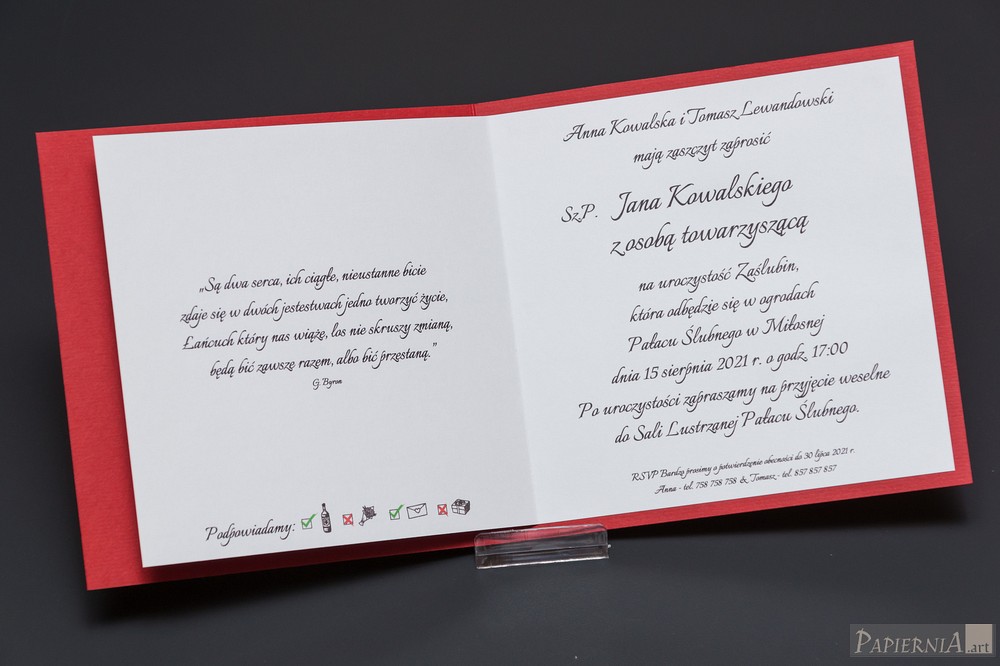 „Są dwa serca, ich ciągłe, nieustanne bicie
zdaje się w dwóch jestestwach jedno tworzyć życie,
Łańcuch który nas wiąże, los nie skruszy zmianą,
będą bić zawsze razem, albo bić przestaną.”
G. Byron
Podpowiadamy:
Anna Kowalska i Tomasz Lewandowski
mają zaszczyt zaprosić
Sz.P. Jana Kowalskiego
z osobą towarzyszącą
na uroczystość Zaślubin,
która odbędzie się w ogrodach
Pałacu Ślubnego w Miłosnej
dnia 15 sierpnia 2021 r. o godz. 17:00
Po uroczystości zapraszamy na przyjęcie weselne
do Sali Lustrzanej Pałacu Ślubnego.
RSVP Bardzo prosimy o potwierdzenie obecności do 30 lipca 2021 r.
Anna - tel. 758 758 758 & Tomasz - tel. 857 857 857
PAPIERNIA.art